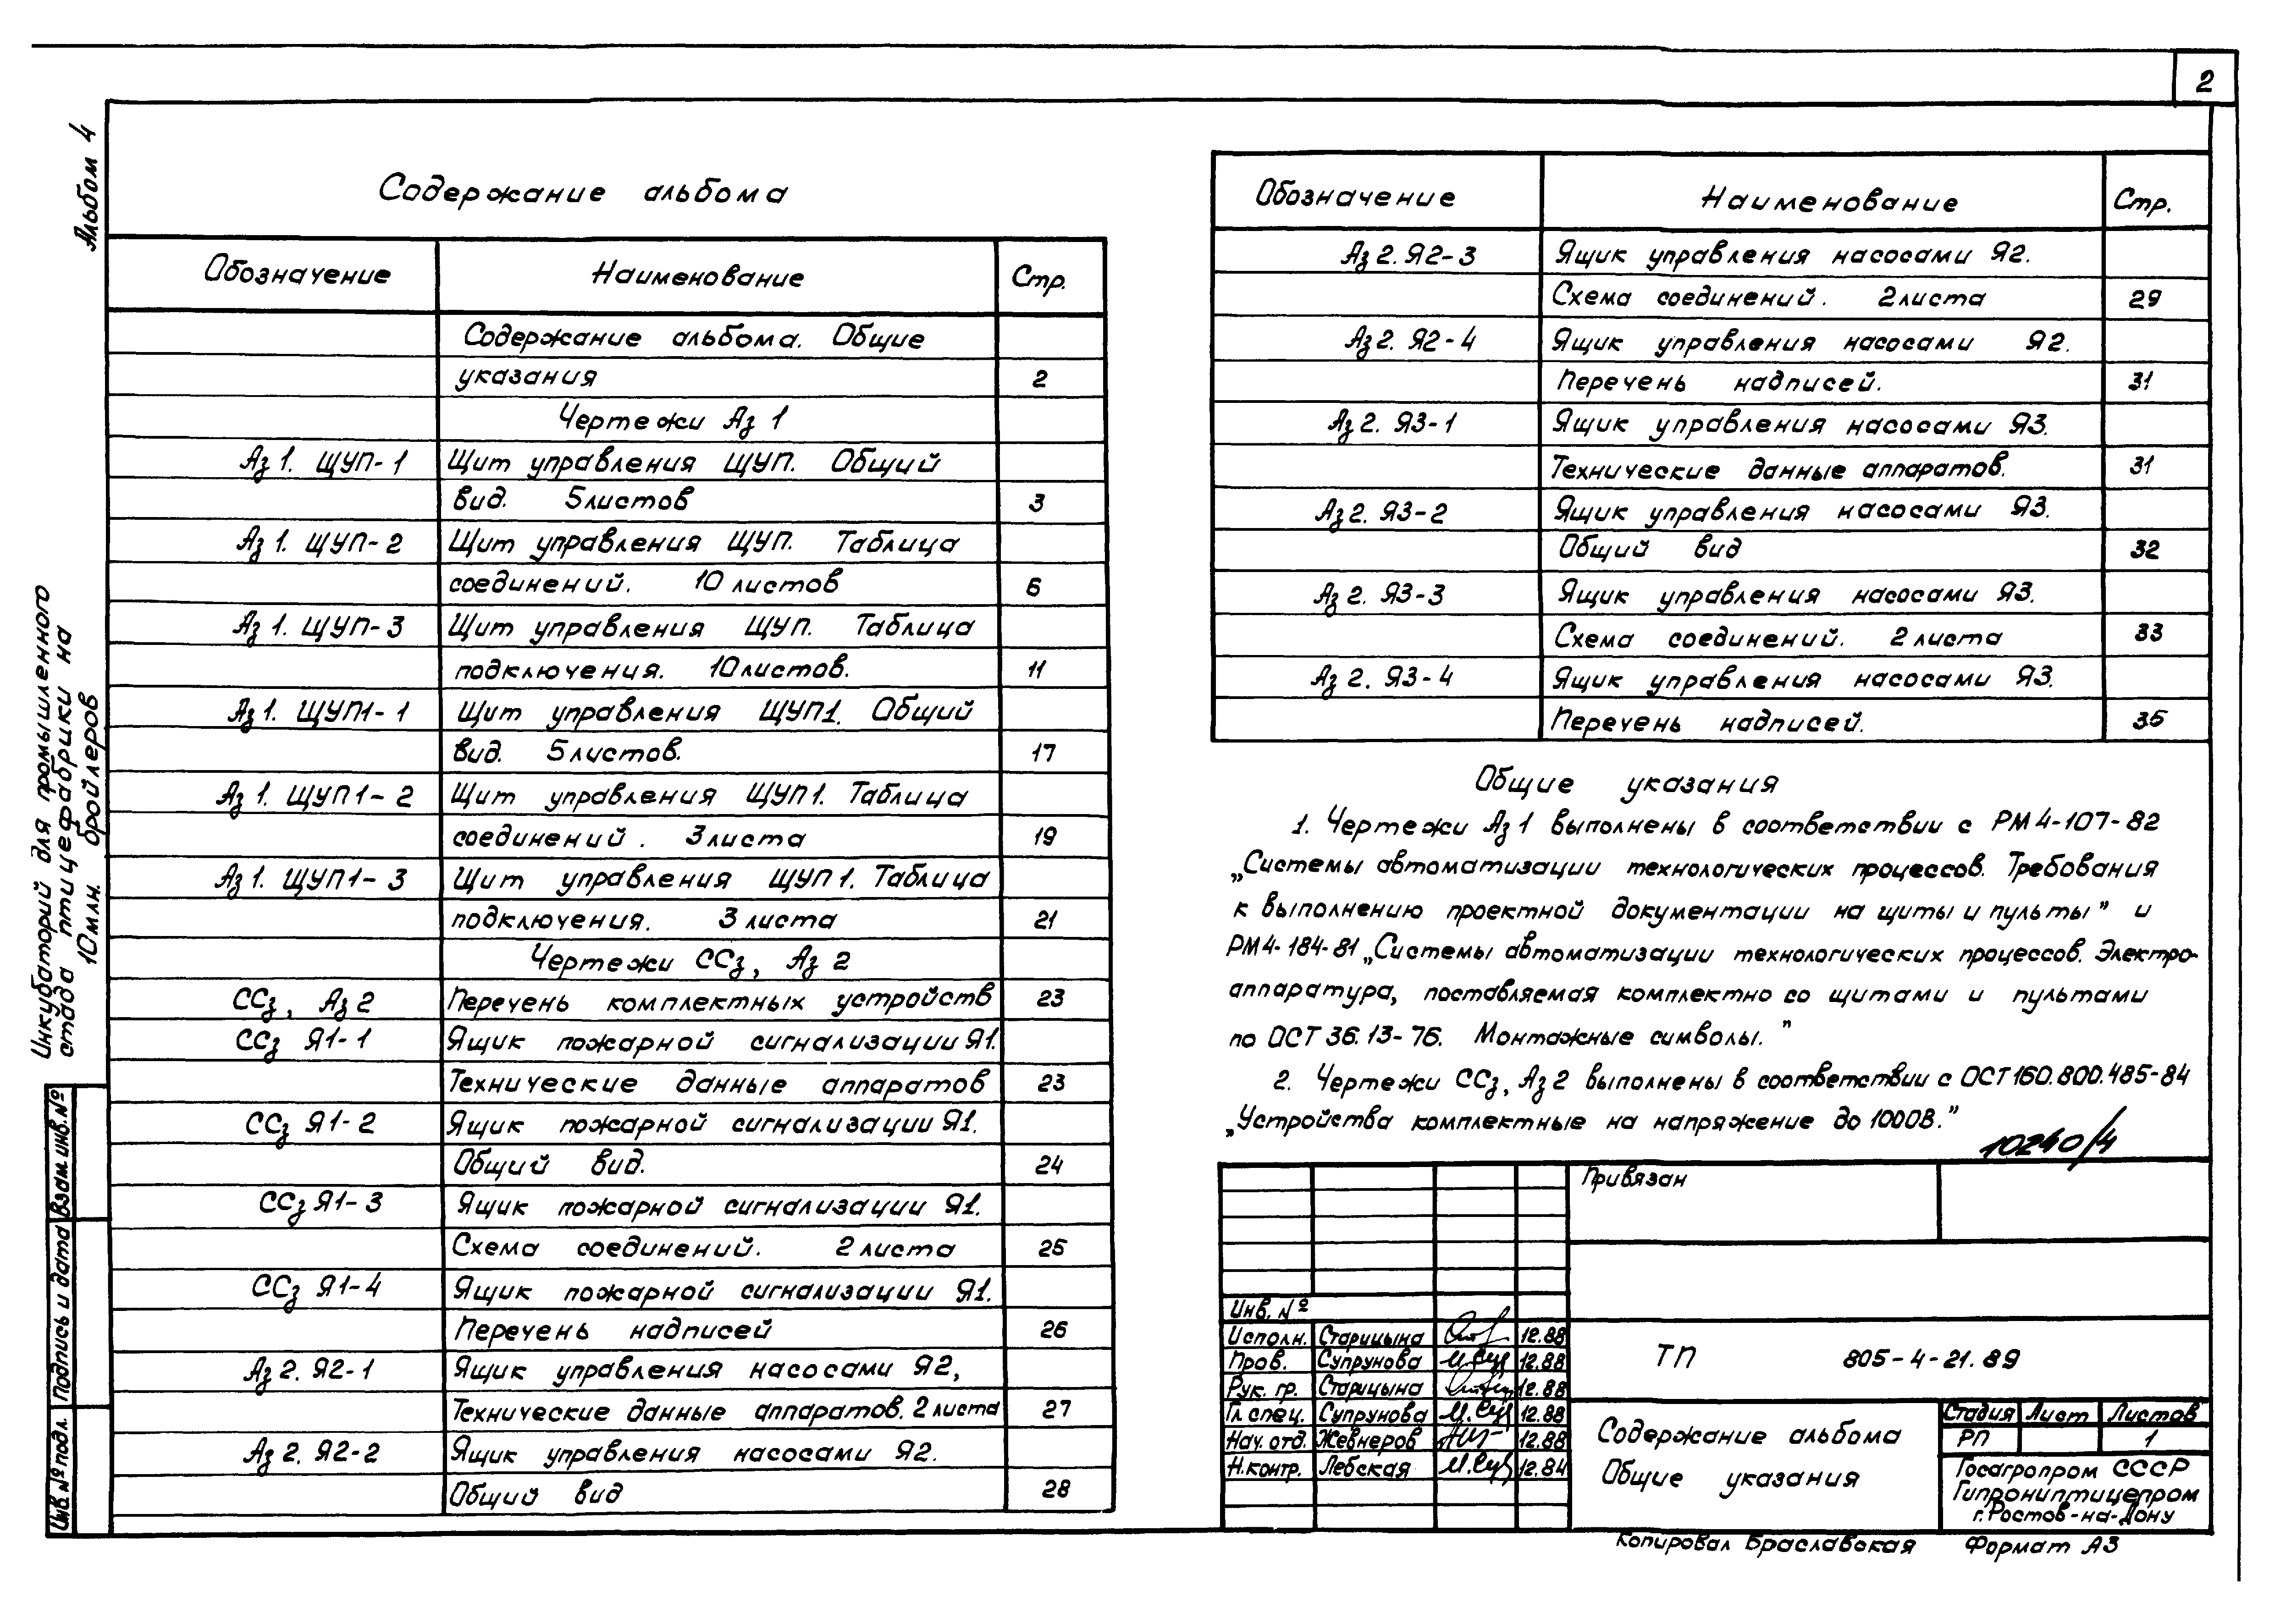 2
Альбом 4
Инкубаторий для промышленного
стада птицефабрики на
10 млн. бройлеров
Взам.инв.№
Подпись и дата
Инв.№ подл.
Содержание альбома
Обозначение Наименование Стр.
Содержание альбома. Общие
указания 2
Чертежи Аз 1
Аз 1. ЩУП-1 Щит управления ЩУП. Общий
вид. 5 листов 3
Аз 1. ЩУП-2 Щит управления ЩУП. Таблица
соединений. 10 листов 6
Аз 1. ЩУП-3 Щит управления ЩУП. Таблица
подключения. 10 листов. 11
Аз 1. ЩУП1-1 Щит управления ЩУП1. Общий
вид. 5 листов. 17
Аз 1. ЩУП1-2 Щит управления ЩУП1. Таблица
соединений. 3 листа 19
Аз 1. ЩУП1-3 Щит управления ЩУП1. Таблица
подключения. 3 листа 21
Чертежи ССз, Аз 2
ССз, Аз 2 Перечень комплектных устройств 23
ССз Я1-1 Ящик пожарной сигнализации Я1.
Технические данные аппаратов 23
ССз Я1-2 Ящик пожарной сигнализации Я1.
Общий вид. 24
ССз Я1-3 Ящик пожарной сигнализации Я1.
Схема соединений. 2 листа 25
ССз Я1-4 Ящик пожарной сигнализации Я1.
Перечень надписей 26
Аз 2. Я2-1 Ящик управления насосами Я2,
Технические данные аппаратов. 2 листа 27
Аз 2. Я2-2 Ящик управления насосами Я2.
Общий вид 28
Обозначение Наименование Стр.
Аз 2. Я2-3 Ящик управления насосами Я2.
Схема соединений. 2 листа 29
Аз 2. Я2-4 Ящик управления насосами Я2.
Перечень надписей. 31
Аз 2. Я3-1 Ящик управления насосами Я3.
Технические данные аппаратов. 31
Аз 2. Я3-2 Ящик управления насосами Я3.
Общий вид 32
Аз 2. Я3-3 Ящик управления насосами Я3.
Схема соединений. 2 листа 33
Аз 2. Я3-4 Ящик управления насосами Я3.
Перечень надписей. 35
Общие указания
1. Чертежи Аз 1 выполнены в соответствии с РМ4-107-82
„Системы автоматизации технологических процессов. Требования
к выполнению проектной документации на щиты и пульты" и
РМ4-184-81 „Системы автоматизации технологических процессов. Электро-
аппаратура, поставляемая комплектно со щитами и пультами
по ОСТ 36.13-76. Монтажные символы."
2. Чертежи ССз, Аз 2 выполнены в соответствии с ОСТ160.800.485-84
„Устройства комплектные на напряжение до 1000В."
10240/4
Привязан
Инв. №
Исполн. Старицына 12.88
Пров. Супрунова 12.88
Рук. гр. Старицына 12.88
Гл.спец. Супрунова 12.88
Нач. отд. Жевнеров 12.88
Н.контр. Лебская 12.84
ТП 805-4-21.89
Содержание альбома
Общие указания
Стадия Лист Листов
РП 1
Госагропром СССР
Гипрониптицепром
г.Ростов-на-Дону
Копировал Браславская Формат А3